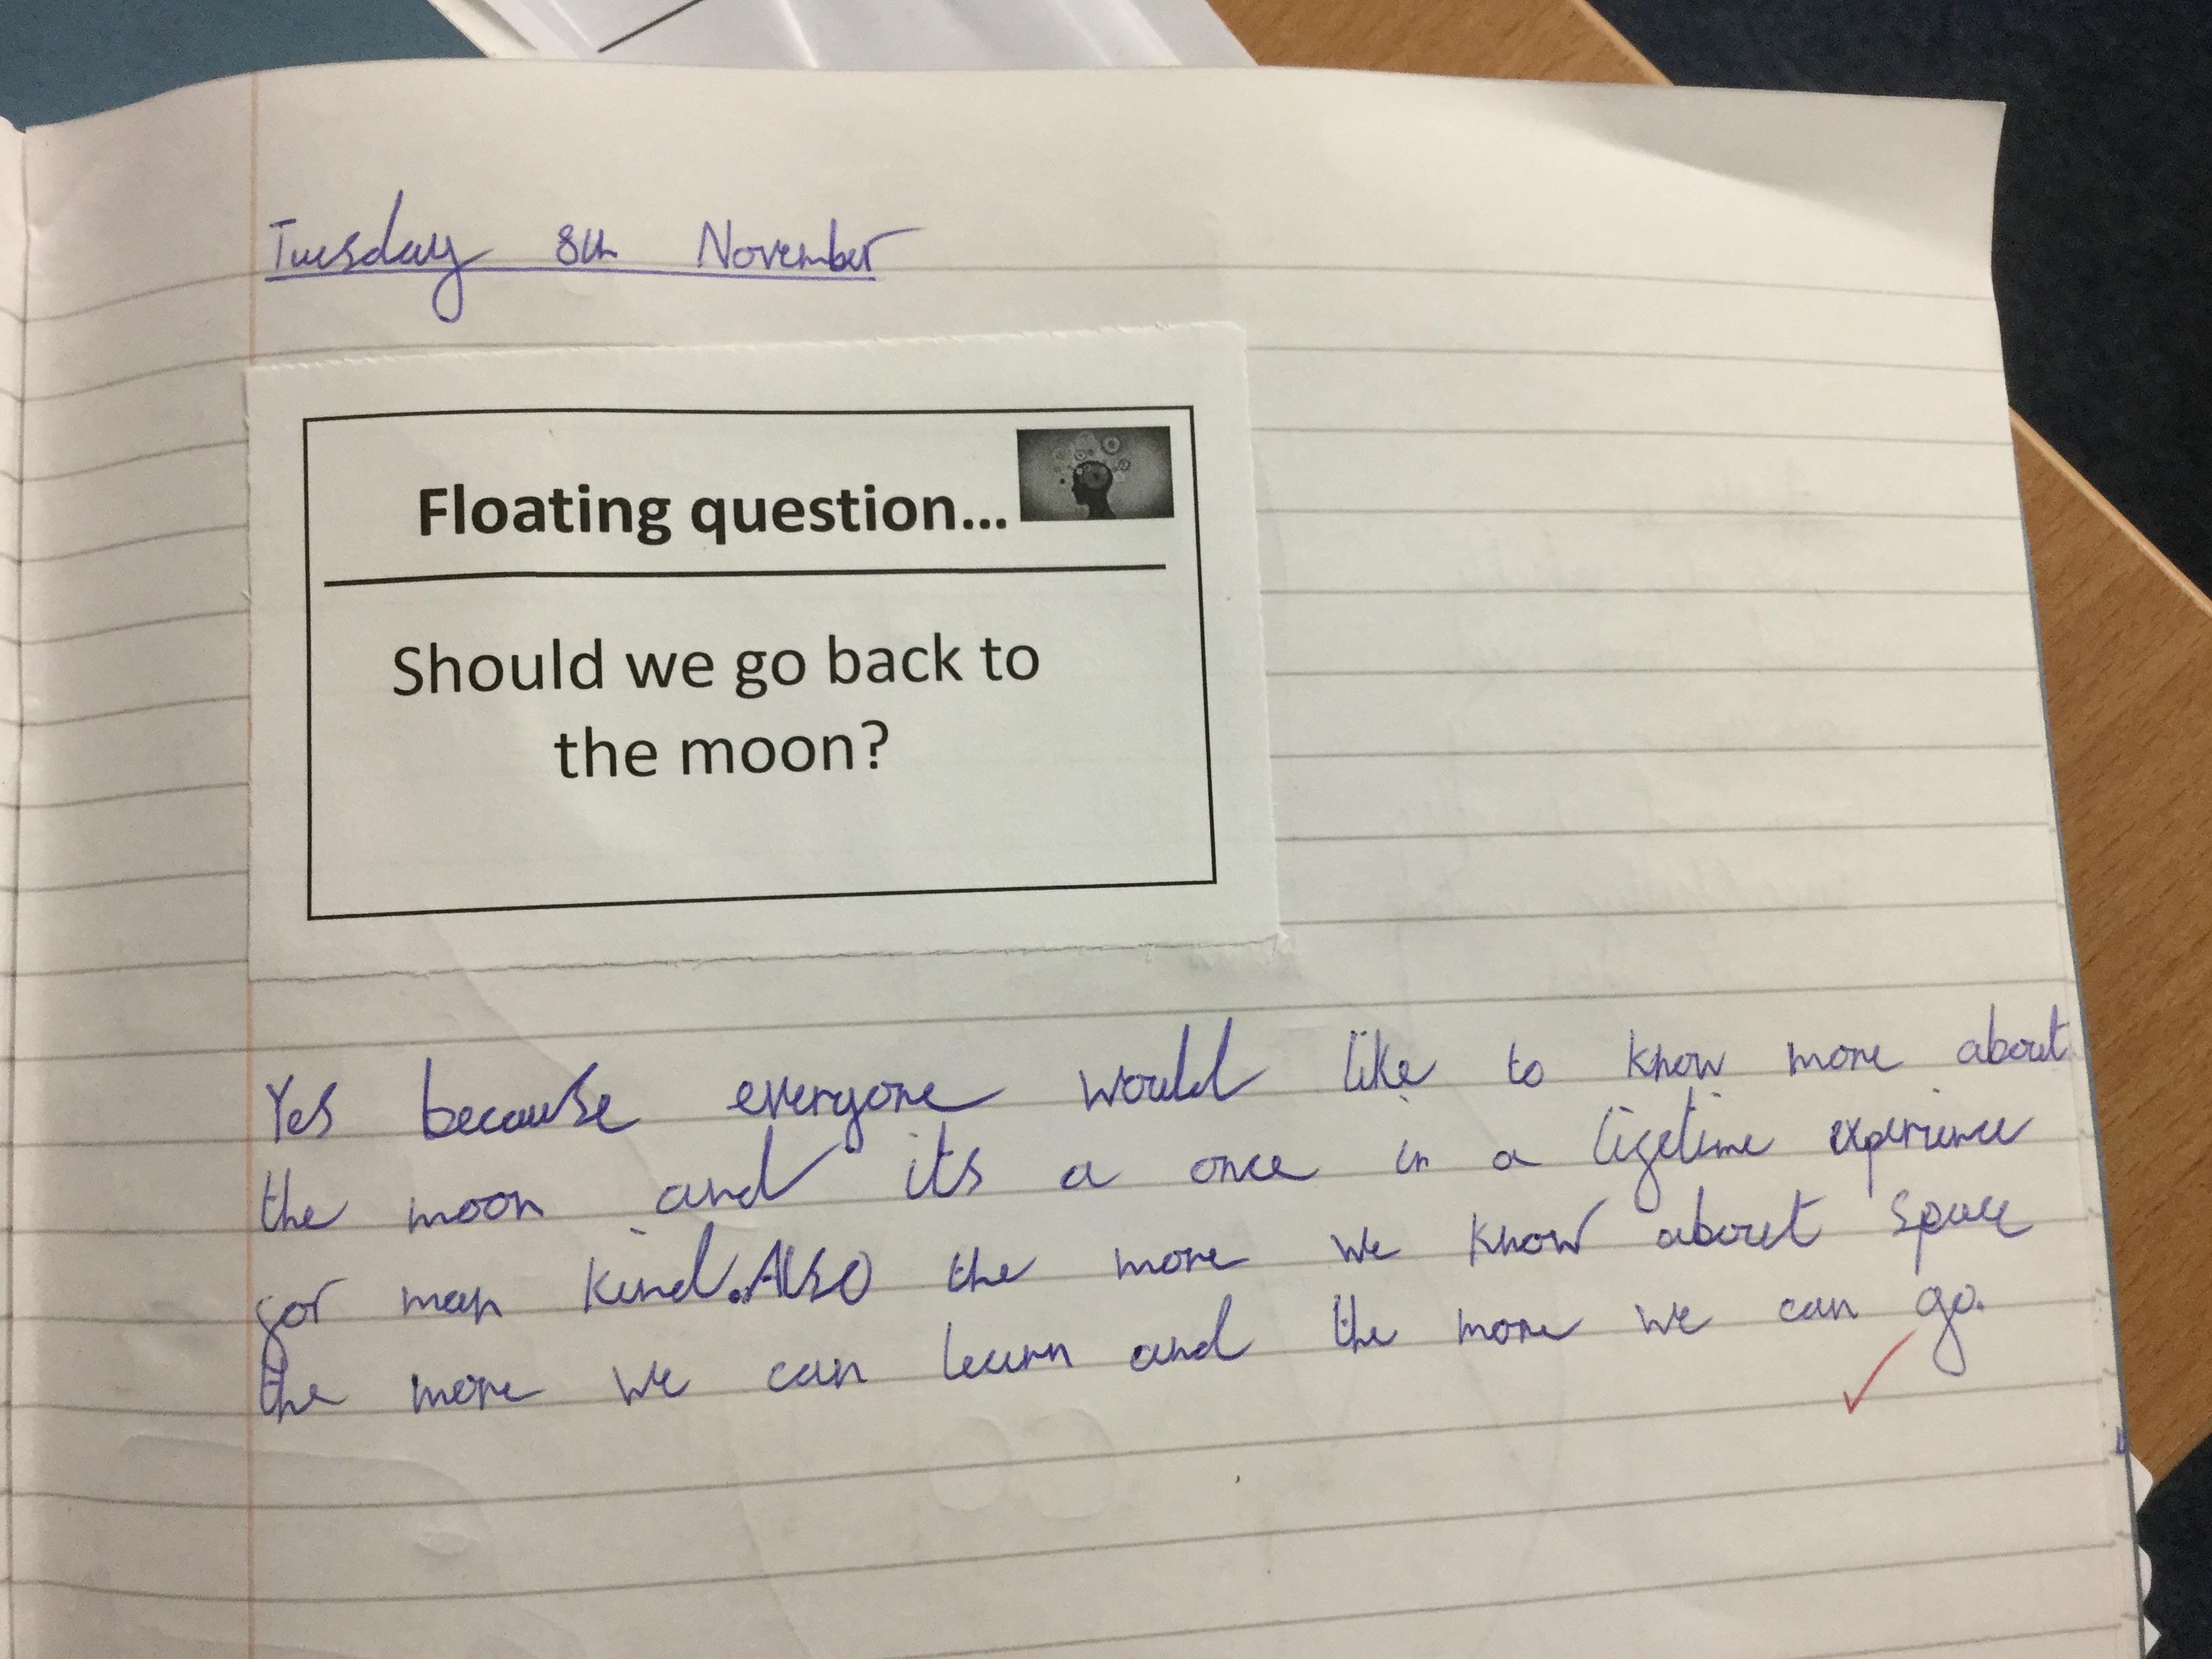 Tuesday 8th November
Floating question...
Should we go back to
the moon?
Yes because everyone would like to know more about
the moon and it's a once in a lifetime experience
for man kind. Also the more we know about space
the more we can learn and the more we can go.